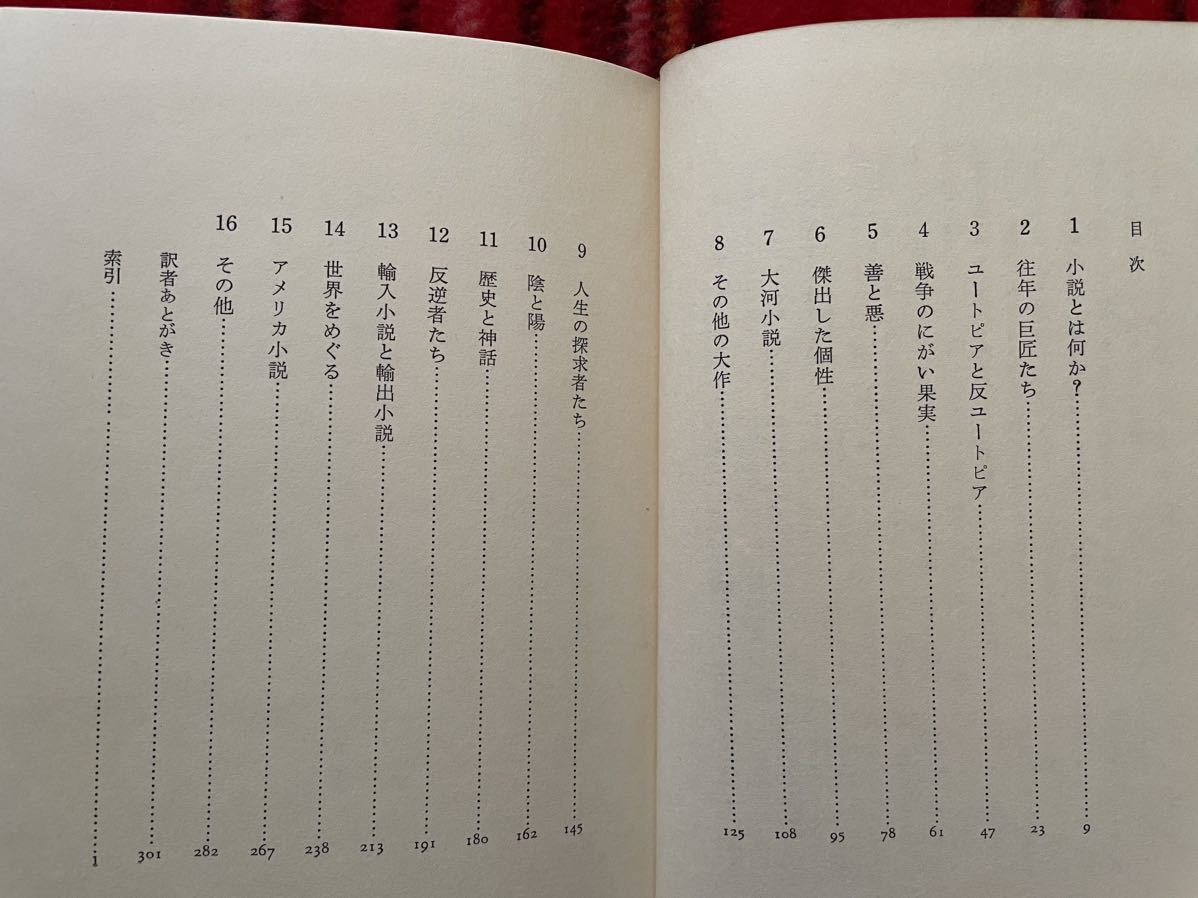 目次
1 小説とは何か?……9
2 往年の巨匠たち……23
3 ユートピアと反ユートピア……47
4 戦争のにがい果実……61
5 善と悪……78
6 傑出した個性……95
7 大河小説……108
8 その他の大作……125
9 人生の探求者たち……145
10 陰と陽……162
11 歴史と神話……180
12 反逆者たち……191
13 輸入小説と輸出小説……213
14 世界をめぐる……238
15 アメリカ小説……267
16 その他……282
訳者あとがき……301
索引……1